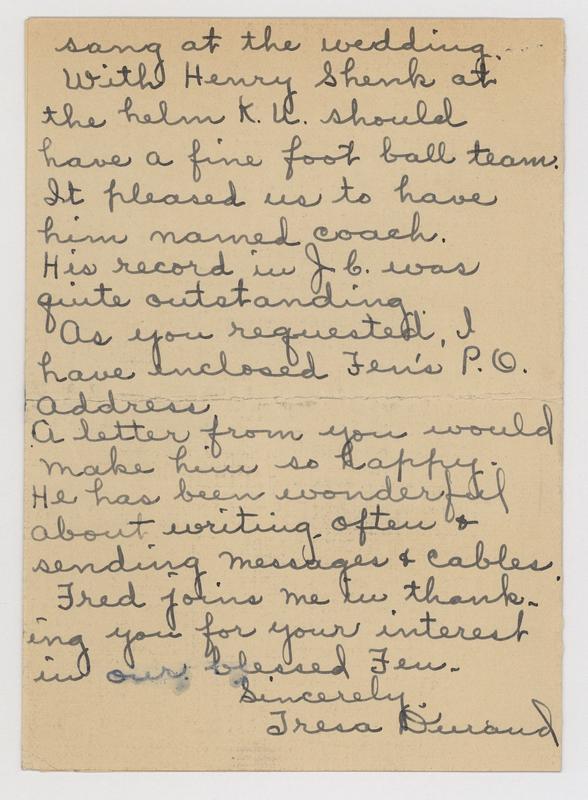 sang at the wedding.
With Henry Shenk at
the helm K.U. should
have a fine foot ball team.
It pleased us to have
him named coach.
His record in J.C. was
quite outstanding.
As you requested, I
have enclosed Fen's P.O.
address
A letter from you would
make him so happy.
He has been wonderful
about writing often &
sending messages & cables.
Fred joins me in thank-
ing you for your interest
in our blessed Fen.
Sincerely,
Tresa Durand